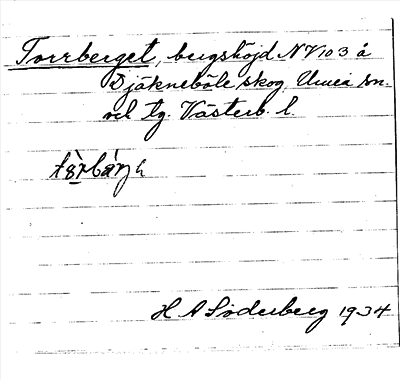 Torrberget, bergshöjd NV 103 å
Djäkneböle skog, Umeå sn.
och tg. Västerb. l.
H A Söderberg 1934